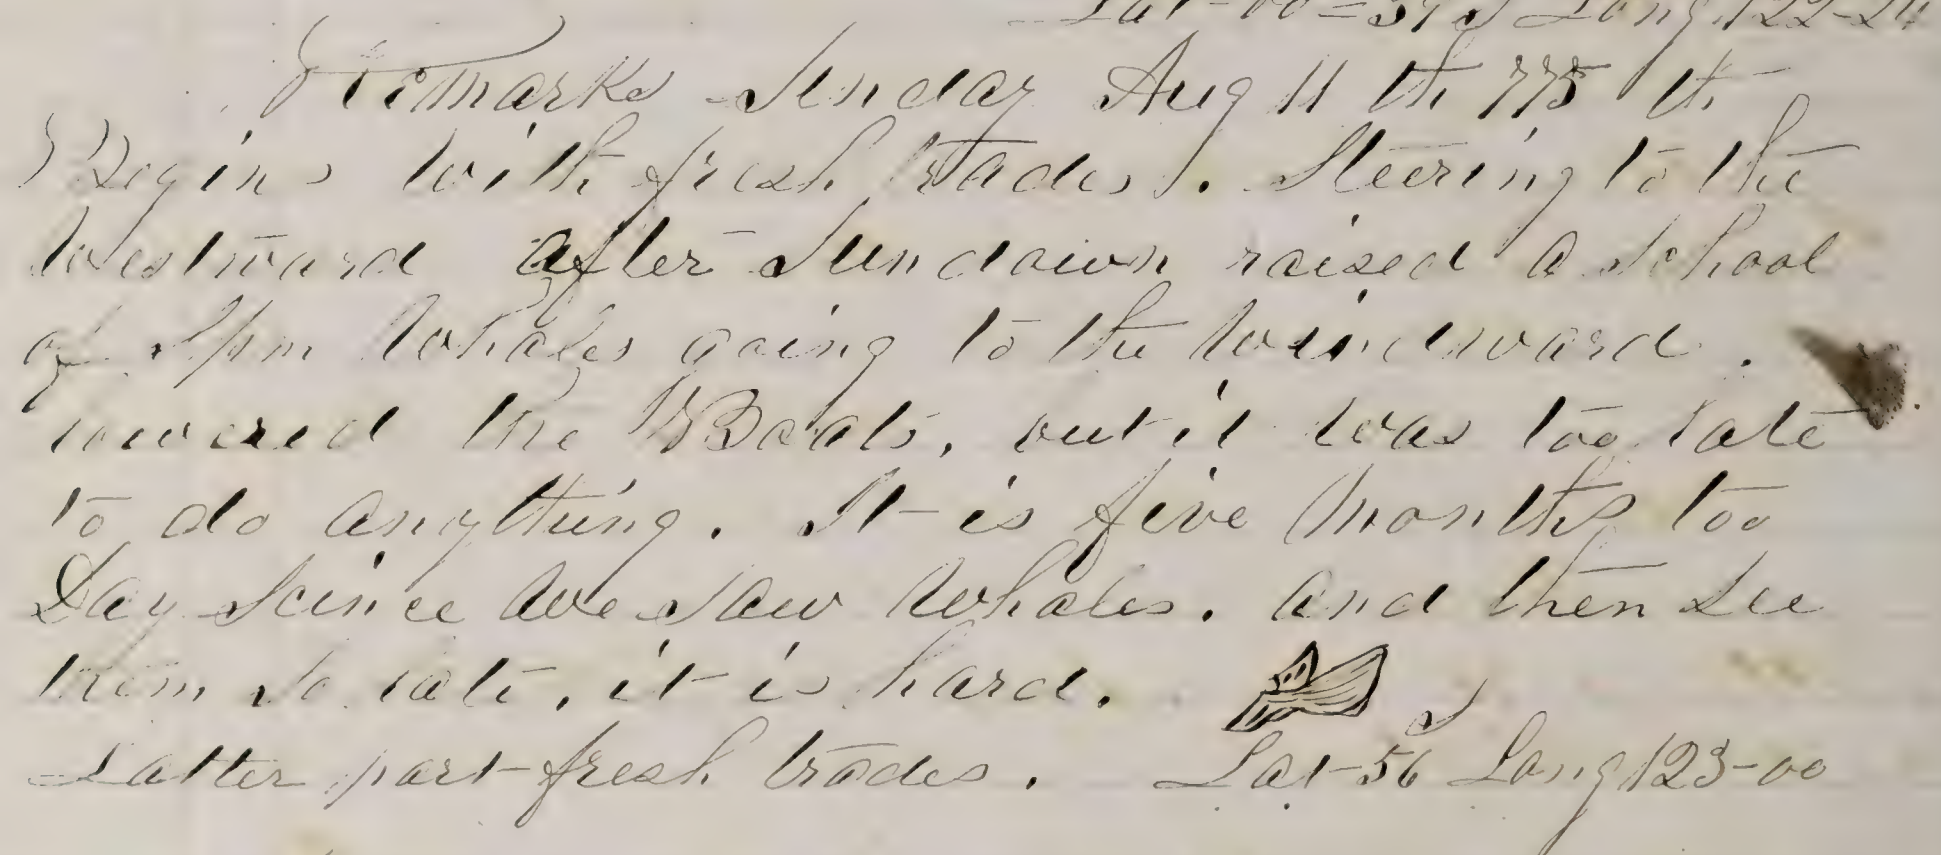 Lat-00=54 S Long 122-24
Remarks Sunday Aug 11 th 775 th
Begins with fresh trades. Steering to the
Westward after Sundown raised a School
of Spm Whales going to the windward.
lowered the Boats, but it was too late
to do anything. It is five Months too
Day Scince we saw Whales. and then see
them so late, it is hard.
Latter part fresh trades. Lat-56 S Long 123-00